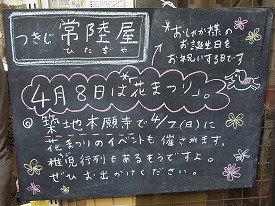 つきじ 常陸屋
ひたちや
*おしゃか様の
お誕生日を
お祝いする日です
4月8日は*「花まつり」。
◎築地本願寺で4/7(日)に
花まつりのイベントも催されます。
稚児行列もあるそうですよ。
ぜひお出かけください。